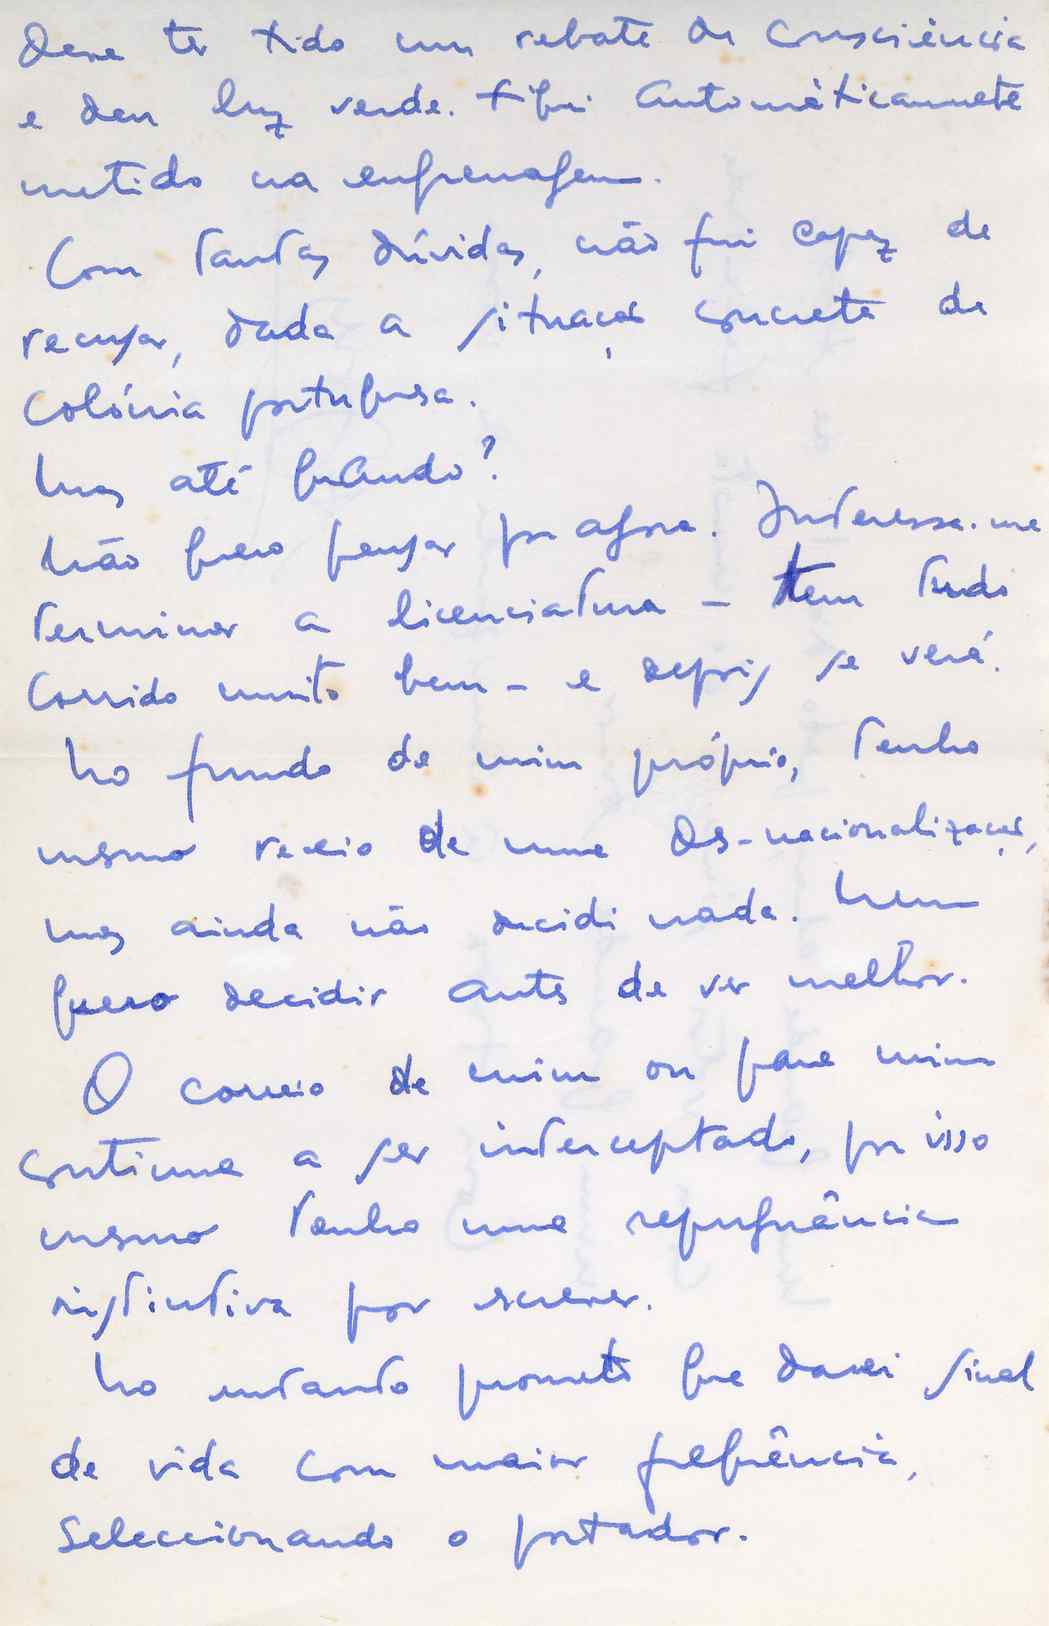 Deve ter tido um rebate de consciência
e deu luz verde. E fui automàticamente
metido na engrenagem.
Com tantas dúvidas, não fui capaz de
recusar, dada a situação concreta da
colónia portuguesa.
Mas até quando?
Não quero pensar por agora. Interessa-me
terminar a licenciatura – tem tudo
corrido muito bem – e depois se verá.
No fundo de mim próprio, tenho
mesmo receio de uma des-nacionalização,
mas ainda não decidi nada. Nem
quero decidir antes de ver melhor.
O correio de mim ou para mim
continua a ser interceptado, por isso
mesmo tenho uma repugnância
instintiva por escrever.
No entanto prometo que darei sinal
de vida com maior frequência,
seleccionando o portador.